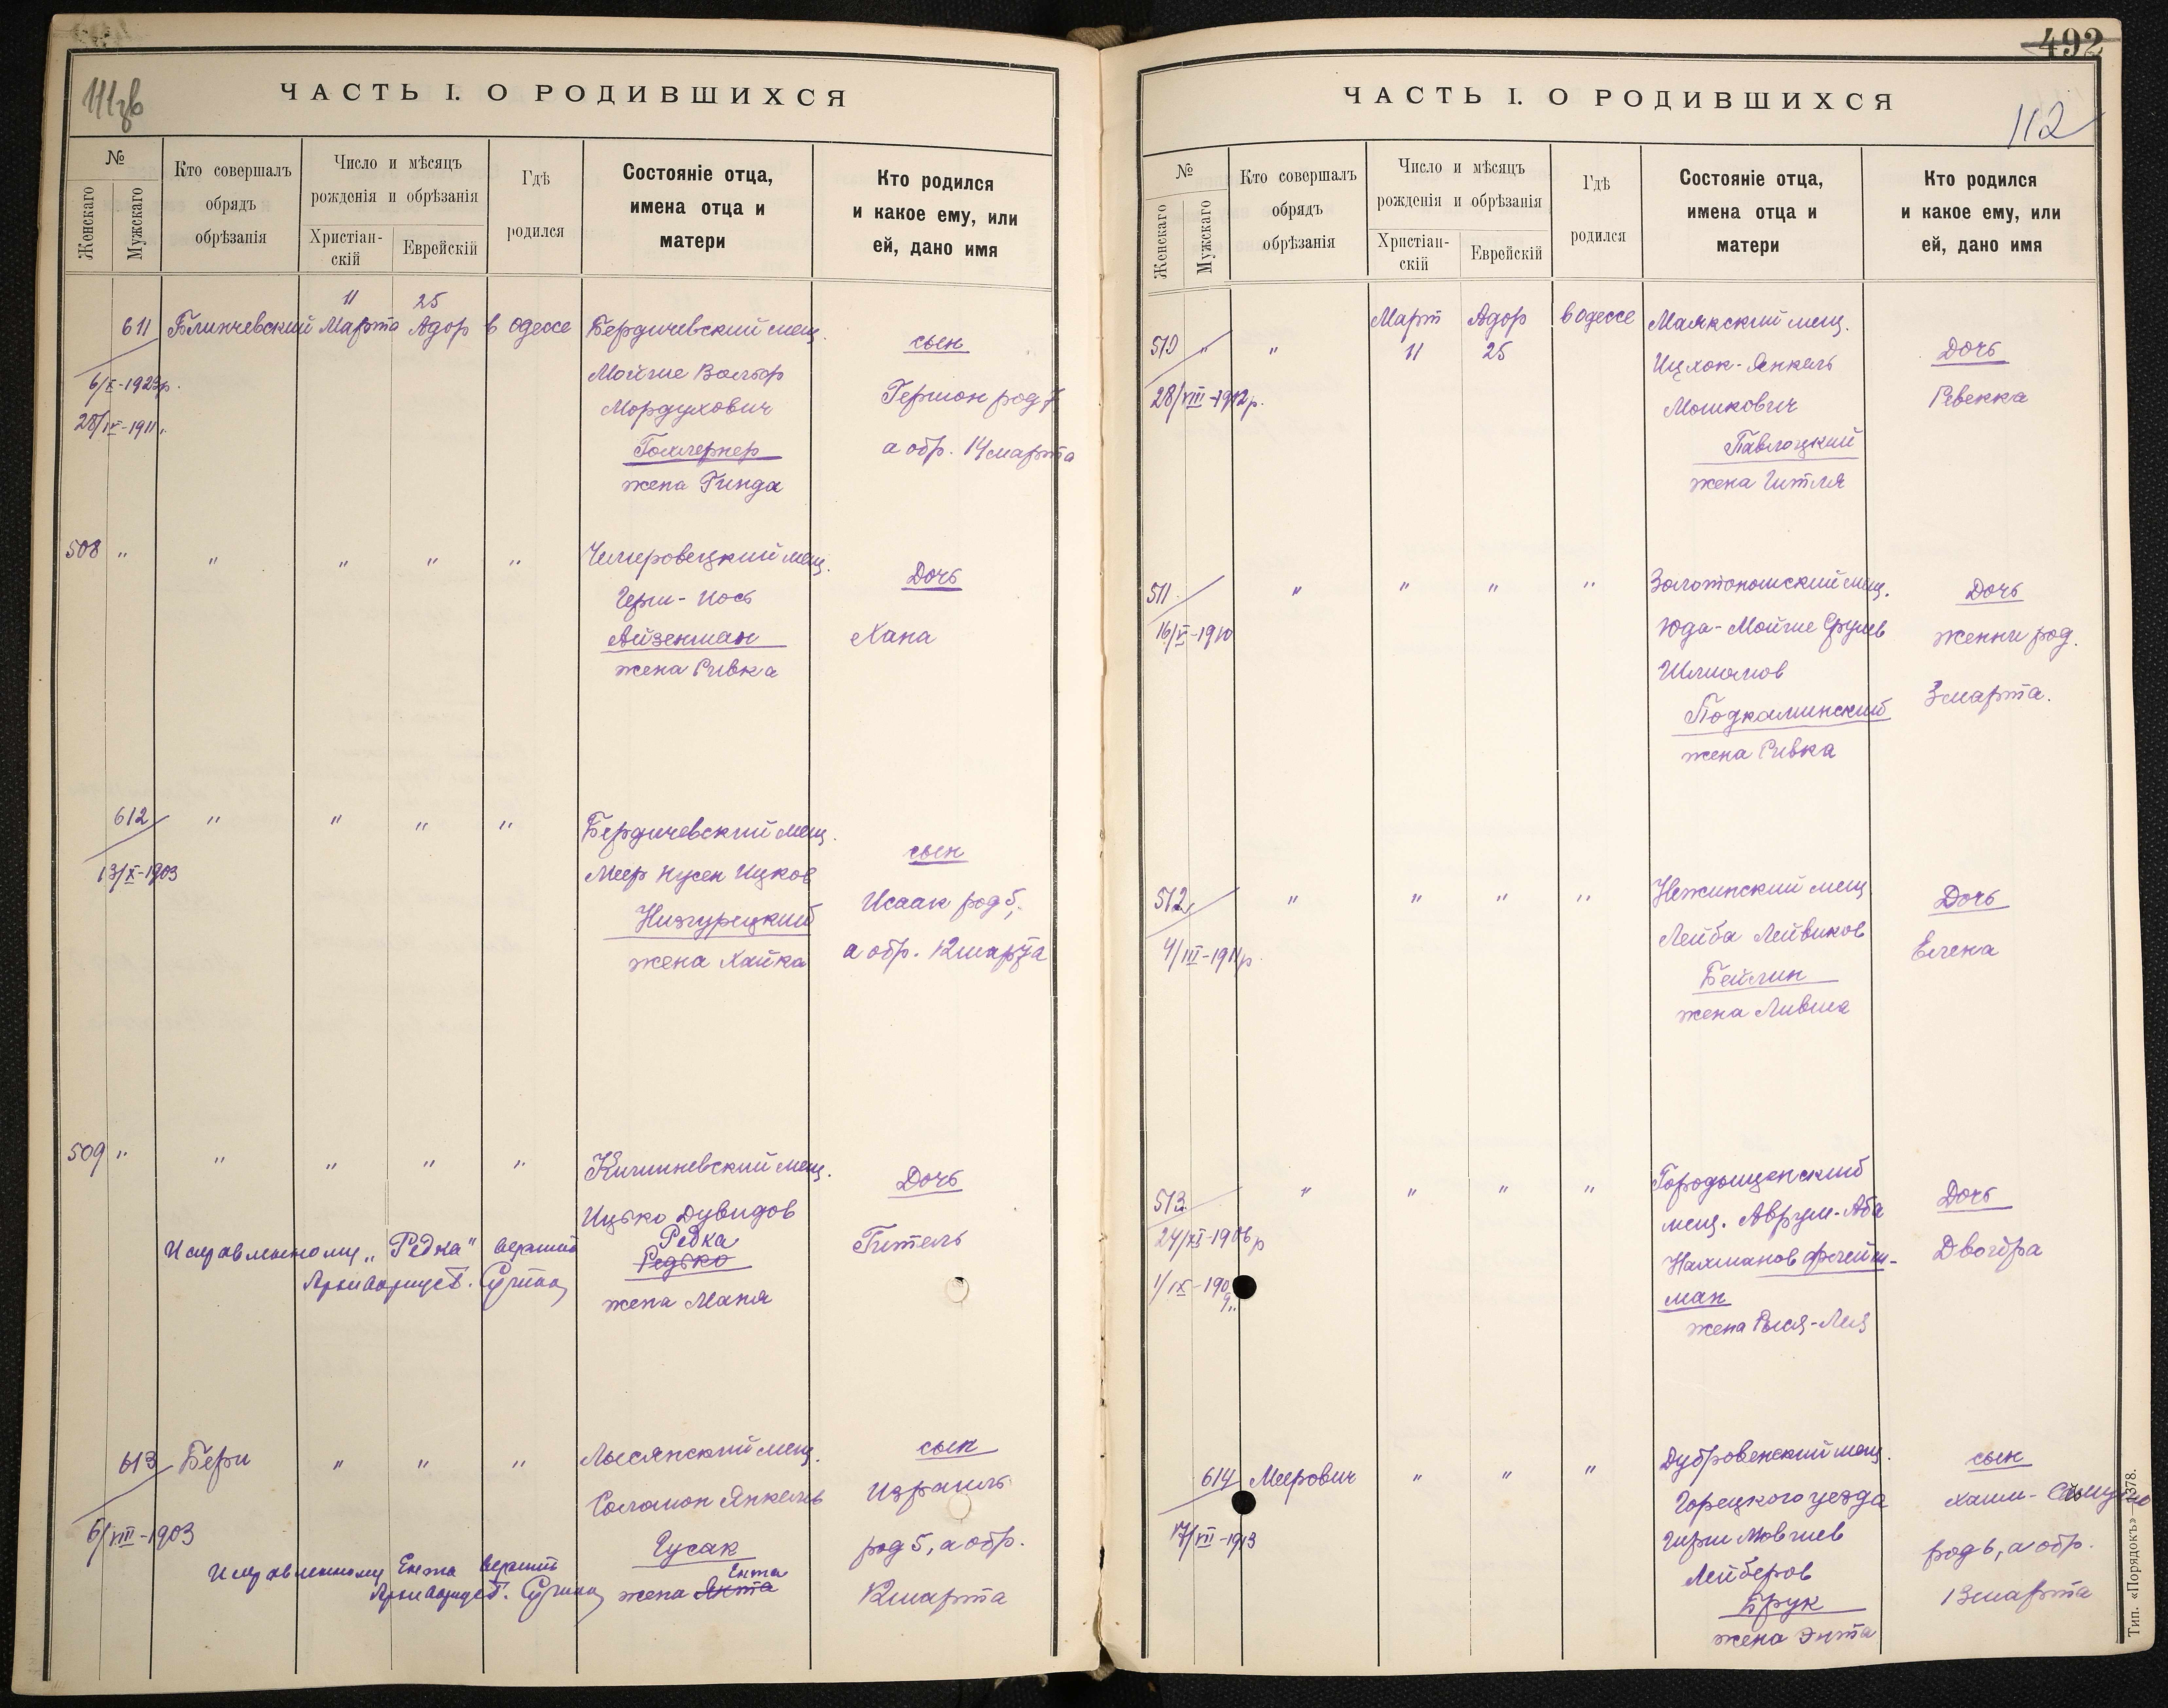 111зв
ЧАСТЬ I. О РОДИВШИХСЯ
№
Женскаго
Мужскаго
Кто совершалъ
обрядъ
обрѣзанія
Число и мѣсяцъ
рожденія и обрѣзанія
Христіан-
скій
Еврейскій
Гдѣ
родился
Состояніе отца,
имена отца и
матери
Кто родился
и какое ему, или
ей, дано имя
11 25
611 Блинчевский Марта Адор в Одессе Бердичевский мещ.
сын
6/X-1923р.
Мойше Вольф
Гершон род 7,
28/IX-1911 "
Мордухович
Гохлернер
а обр. 14 марта
жена Гинда
508 " " " " " Чемеровецкий мещ.
Дочь
Герш-Иось
Айзенман
Хана
жена Ривка
612 " " " " Бердичевский мещ.
сын
13/X-1903
Меер Нусен Ицков
Исаак род 5,
Низгурецкий
а обр. 12 марта
жена Хайка
509 " " " " " Кишиневский мещ.
Дочь
Ицько Дувидов
Исправленному "Редка" верить
Редка
Гитель
Редько
жена Маня
613 Бери " " " Лысянский мещ.
сын
Соломон Янкелев
Израиль
6/VIII-1903
Гусак
род 5, а обр.
Исправленному Ента верить
Ента
жена Янта
12 марта
492
112
ЧАСТЬ I. О РОДИВШИХСЯ
№
Женскаго
Мужскаго
Кто совершалъ
обрядъ
обрѣзанія
Число и мѣсяцъ
рожденія и обрѣзанія
Христіан-
скій
Еврейскій
Гдѣ
родился
Состояніе отца,
имена отца и
матери
Кто родился
и какое ему, или
ей, дано имя
Март Адор в Одессе Маякский мещ.
510 " " 11 25
Дочь
Ицхок-Янкель
28/VIII-1912р.
Мошкович
Ревекка
Павлоцкий
жена Гитля
511 " " " " Золотоношский мещ.
Дочь
16/V-1910
Юда-Мойше Сруиев
Женни род.
Шлиомов
3 марта.
Подкаминский
жена Ривка
512 " " " " Нежинский мещ.
Дочь
4/III-1911р.
Лейба Лейвиков
Елена
Бейлин
жена Ливша
513 " " " " Городищенский
Дочь
мещ. Аврум-Аба
24/XI-1906р
Нахманов Флейш-
Двойра
1/IX-1909 "
ман
жена Рыся-Лея
614 Меерович " " " Дубровенский мещ.
сын
Горецкого уезда
17/VII-1913
Гирш Мовшев
род 6, а обр.
Лейберов
Брук
13 марта
жена Энта
Тип. «Порядокъ»—378.